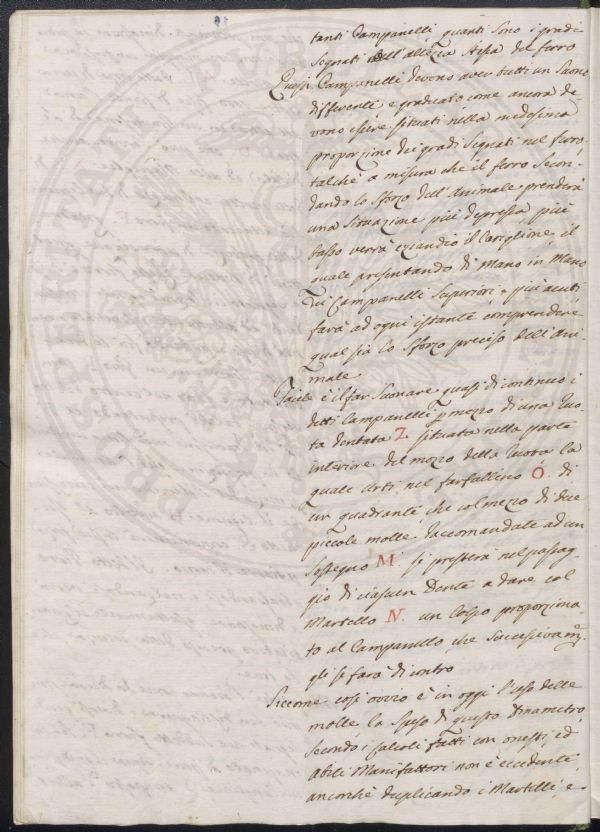 tanti Campanelli quanti sono i gradi
segnati dell'altezza stessa del ferro
Questi Campanelli devono aver tutti un suono
differente e graduato come ancora de-
vono essere situati nella medesima
proporzione dei gradi segnati nel ferro
talchè a misura che il ferro secon-
dando lo sforzo dell'animale prenderà
una situazione più depressa più
basso verrà eziandio il Coriglione il
quale presentando di Mano in Mano
dei Campanelli superiori e più acuti
farà ad ogni istante comprendere
qual sia lo sforzo preciso dell'ani-
male
Facile è il far suonare quasi di continuo i
detti Campanelli p mezzo di una ruo-
ta dentata Z. situata nella parte
interiore del mozzo della ruota la
quale urti nel farfallino O. di
un quadrante che col mezzo di due
piccole molle raccomandate ad un
sostegno M. si presterà nel passag-
gio di ciascun Dente a dare col
Martello N. un Colpo proporziona
to al Campanello che successivam.
gli si farà di contro
Siccome così ovvio è in oggi l'uso delle
molle la spesa di questo Dinametro
secondo i calcoli fatti con onesti, ed
abili Manifattori non è eccedente
ancorchè duplicando i Martelli, e